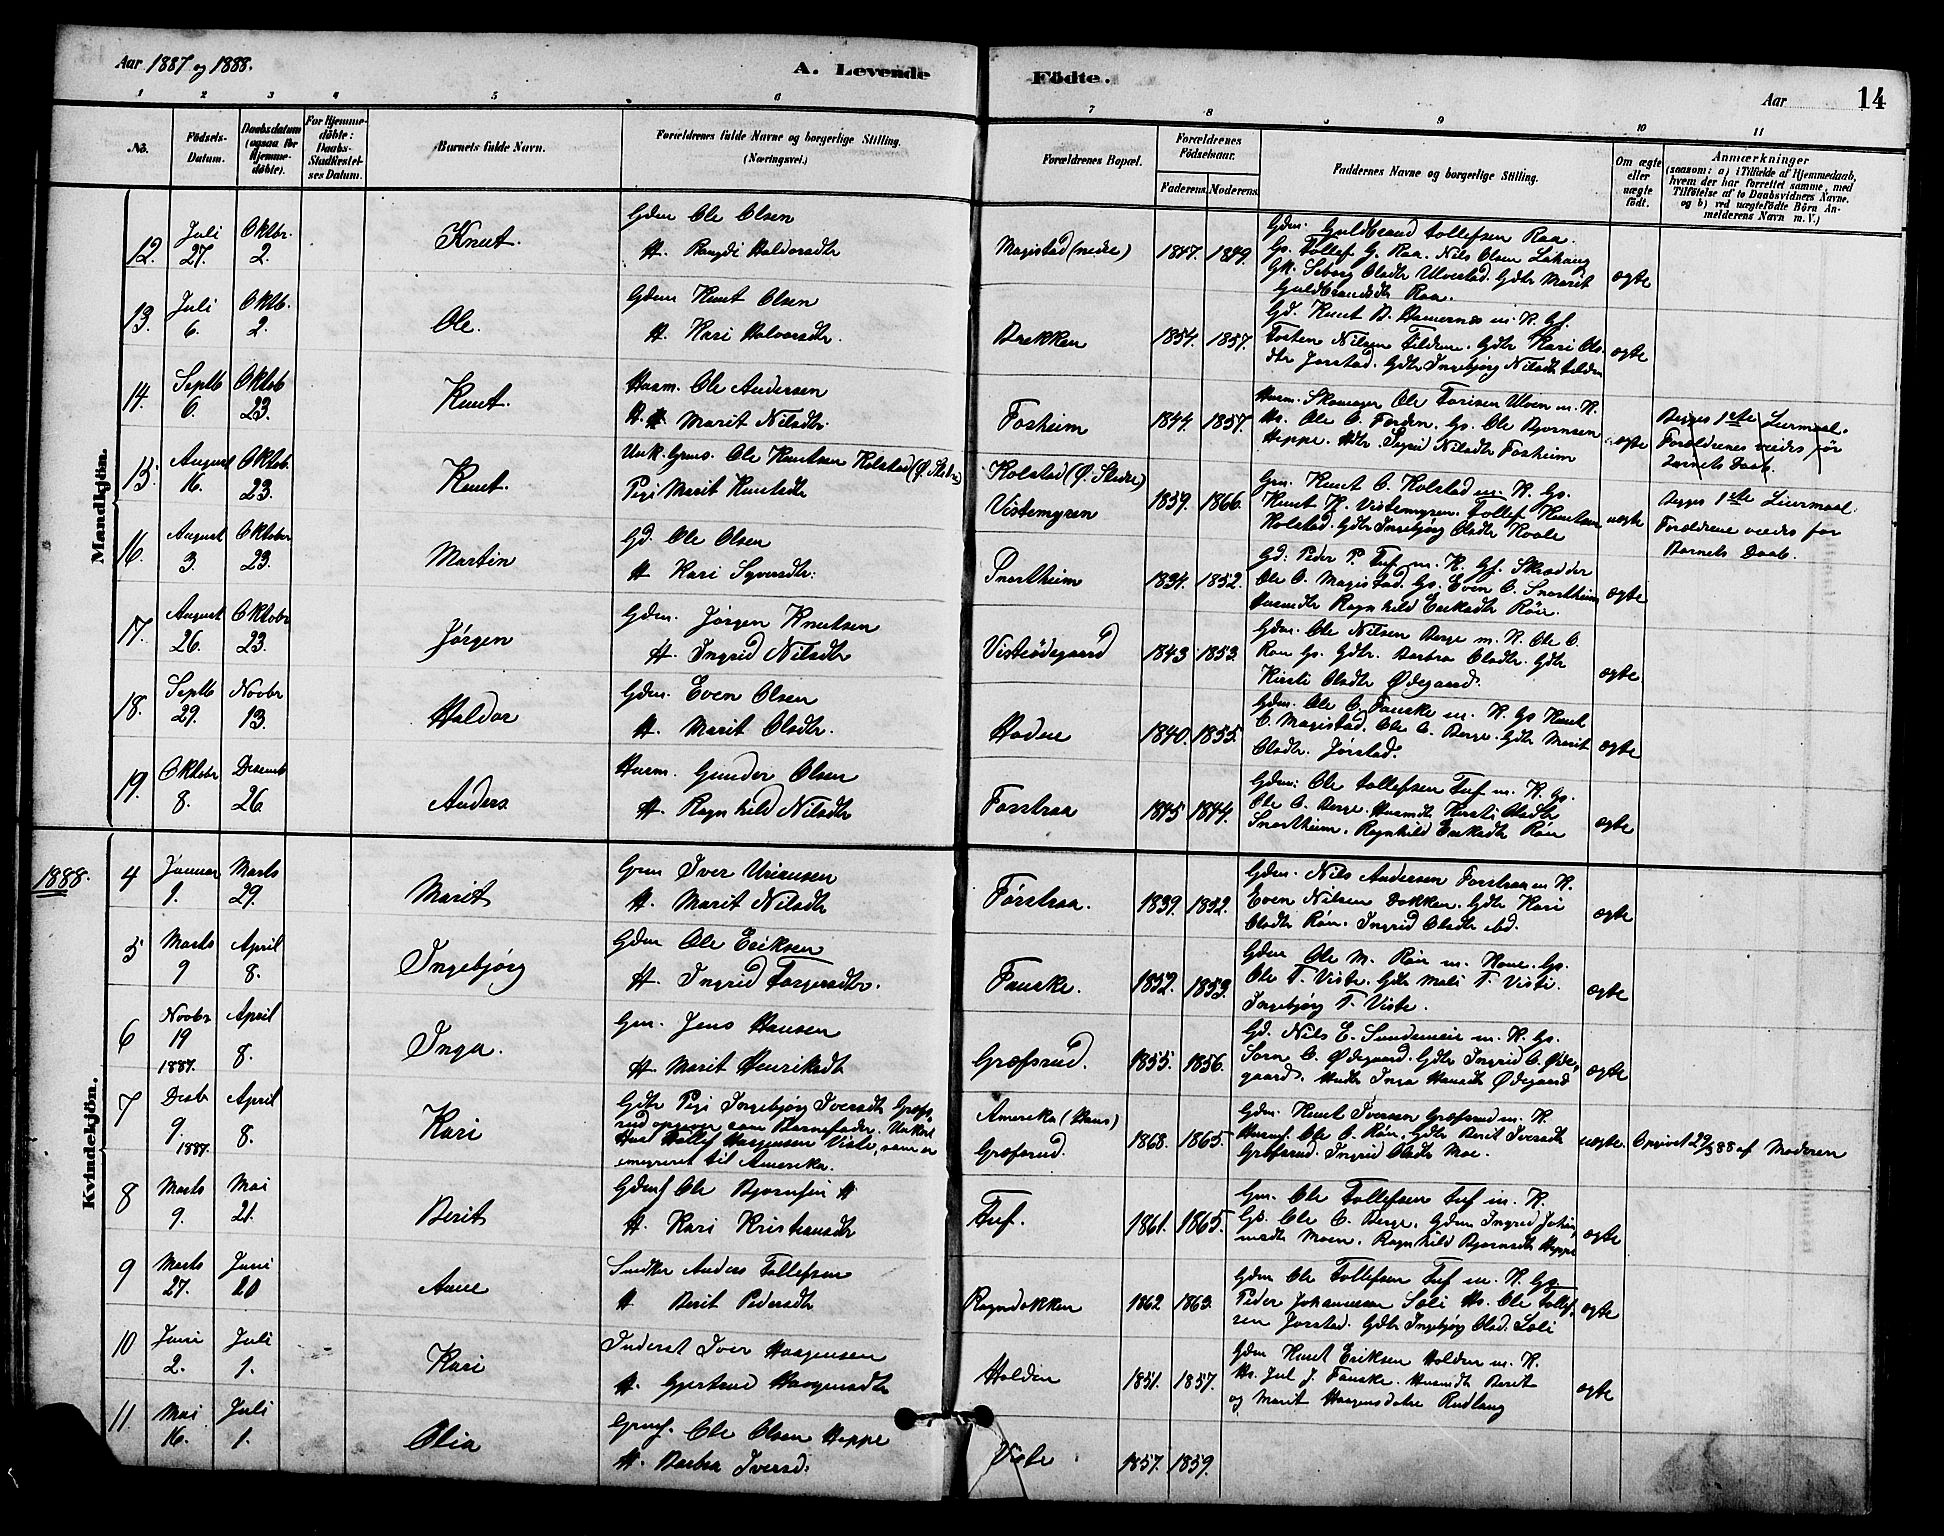 Aar 1887 og 1888.
A. Levende Födte.
Aar
14
1 2 3 4 5 6 7 8 9 10 11
No.
Födsels-Datum.
Daabsdatum (ogsaa for Hjemmedöbte).
For Hjemmedöbte: Daabs-Stadfæstelses Datum.
Barnets fulde Navn.
Forældrenes fulde Navne og borgerlige Stilling. (Næringsvei.)
Forældrenes Bopæl.
Forældrenes Födselsaar.
Faderens. Moderens.
Faddernes Navne og borgerlige Stilling.
Om ægte eller uægte født.
Anmærkninger
(saasom: a) i Tilfælde af Hjemmedaab, hvem der har forrettet samme, med Tilföielse af to Daabsvidners Navne, og b) ved uægtefödte Börn Anmelderens Navn m. V.)
Mandkjön.
12. Juli 27. Oktbr. 2. Knut.
Gdm Ole Olsen
H. Haldorsdtr
Magistad (nedre) 1847. 1849.
Gdm. Guldbrand Tollefsen Raa.
Gs. Tollef G. Raa. Nils Olsen
Olsdtr Ulvestad. Gdtr Marit
Guldbrandsdtr Raa.
ægte
13. Juli 6. Oktb. 2. Ole.
Gdm Knut Olsen
H. Kari Halvorsdtr.
Brekken 1854. 1857.
Gd. Knut B. m. K. Gf.
Tosten Nilsen. Gdtr Kari Ols
dtr Jorstad. Gdtr Ingebjørg Nilsdtr
ægte
14. Septb 6. Oktob 23. Knut.
Husm. Ole Andersen
H. Marit Nilsdtr.
Fosheim 1844. 1857.
Husm. Skomager Ole Ulven m. K.
Hs. Ole O. Gs. Ole Bjørnsen
Heppe. Hdtr Sigrid Nilsdtr Fosheim
ægte
Begges 1ste Leiermaal.
Forældrenes vies før
Barnets Daab.
15. August 16. Oktob. 23. Knut.
Unk. Gms. Ole Knutsen Kolstad (Ø. Slidre)
Pige Marit Knutsdtr
Kolstad (Ø. Slidre)
Vistemyren 1859. 1866.
Gm. Knut O. Kolstad m. K. Gs.
Knut K. Vistemyren. Tollef Knutsen
Kolstad. Gdtr Ingebjørg Olsdtr
uægte
Begges 1ste Leiermaal.
Forældrene viedes før
Barnets Daab.
16. August 3. Oktober 23. Martin
Gd. Ole Olsen
H. Kari Syversdtr.
Snortheim 1834. 1852.
Gd: Peder P. Tuf m. K. Gf. Skrædder
Ole O. Magistad. Gs. Even O. Snortheim
Husmdtr Ragnhild Eriksdtr Røn.
ægte
17. August 26. Oktobr 23. Jørgen
Gdm. Jørgen Knutsen
H. Ingrid Nilsdtr
Visteødegaard 1843 1853.
Gdm. Ole Nilsen Berge m. K. Ole O.
Røn Gs. Gdtr. Barbra Olsdtr. Gdtr
Kirsti Olsdtr Ødegaard.
ægte
18. Septb 29. Novbr 13. Haldor
Gdm. Even Olsen
H. Marit Olsdtr.
1840. 1855.
Gdm. Ole O. Fauske m. K. Gs Knut
O. Magistad. Ole O. Berge. Gdtr Marit
Olsdtr. Jørstad.
ægte
19. Oktobr 8. Desemb 26. Anders
Husm. Gunder Olsen
H. Ragnhild Nilsdtr
Forstraa 1845 1844.
Gdm: Ole Tollefsen Tuf m. K. Gs.
Ole O. Berge. Husmdtr Kirsti Olsdtr
Snortheim. Ragnhild Eriksdtr Røn
ægte
1888.
Kvindekjön.
4 Januar 1. Marts 29. Marit
Gm Iver
H. Marit Nilsdtr
Førstraa. 1839. 1852.
Gdm. Nils Andersen Forstraa m K.
Even Nilsen Dokken. Gdtr Kari
Olsdtr Røn. Ingrid Olsdtr ibd.
ægte
5 Marts 9 April 8. Ingebjørg
Gdm Ole Eriksen
H. Ingrid Torgersdtr.
Fauske. 1852. 1853.
Gdm Ole M. Røn m. Kone. Gs.
Ole T. Viste. Gdtr Mali T. Viste.
Ingebjørg T. Viste.
ægte
6 Novbr 19 1887. April 8. Inga.
Gm. Jens Hansen
H. Marit Henriksdtr
Græfsrud. 1855. 1856.
Gd. Nils E. Sundemeie m. K. Gs.
Søren O. Ødegaard. Gdtr Ingrid O. Øde-
gaard. Hmdtr Inga Hansdtr Ødegaard
ægte
7 Desbr 9. 1887. April 8. Kari
Gdtr Pige Ingebjørg Iversdtr Græfs
rud opgiver som Barnefader: Unkarl
Hus Tollef Haagensen Viste, som er
emigreret til Amerika.
Amerika (Hans)
Græfsrud. 1868. 1865.
Gdm. Knut Iversen Græfsrud m. K.
Husmf. Ole O. Røn. Gdtr Berit Iversdtr
Græfsrud. Ingrid Olsdtr Moe.
uægte
Opgivet 29/3 88 af Moderen
8 Marts 9. Mai 21. Berit
Gdmf Ole
H. Kari Kristiansdtr
Tuf. 1861. 1865.
Gm. Ole Tollefsen Tuf m. K.
Gs. Ole O. Berge. Gdm Ingrid Johan
nesdtr Moen. Ragnhild Bjørnsdtr Heppe
ægte
9 Marts 27. Juni 20 Anne
Snedker Anders Tollefsen
H Berit Pedersdtr
Rogndokken 1862 1863.
Gdm Ole Tollefsen Tuf m. K. Gs.
Peder Johannesen Søli Hs. Ole Tollef-
sen Jorstad. Gdtr Ingebjørg Olsd. Søli
ægte
10 Juni 2. Juli 1. Kari
Inderst Iver Haagensen
H. Gjertrud Haagensdtr
Holden 1851. 1857.
Gdm Knut Eriksen Holden m. K.
Hs. Jul J. Fauske. Husmdtr Berit
og Marit Haagensdatter Rudlang
ægte
11. Mai 16. Juli 1. Olia
Grmf. Ole Olsen Heppe
H. Barbra Iversd.
Viste 1857. 1859.